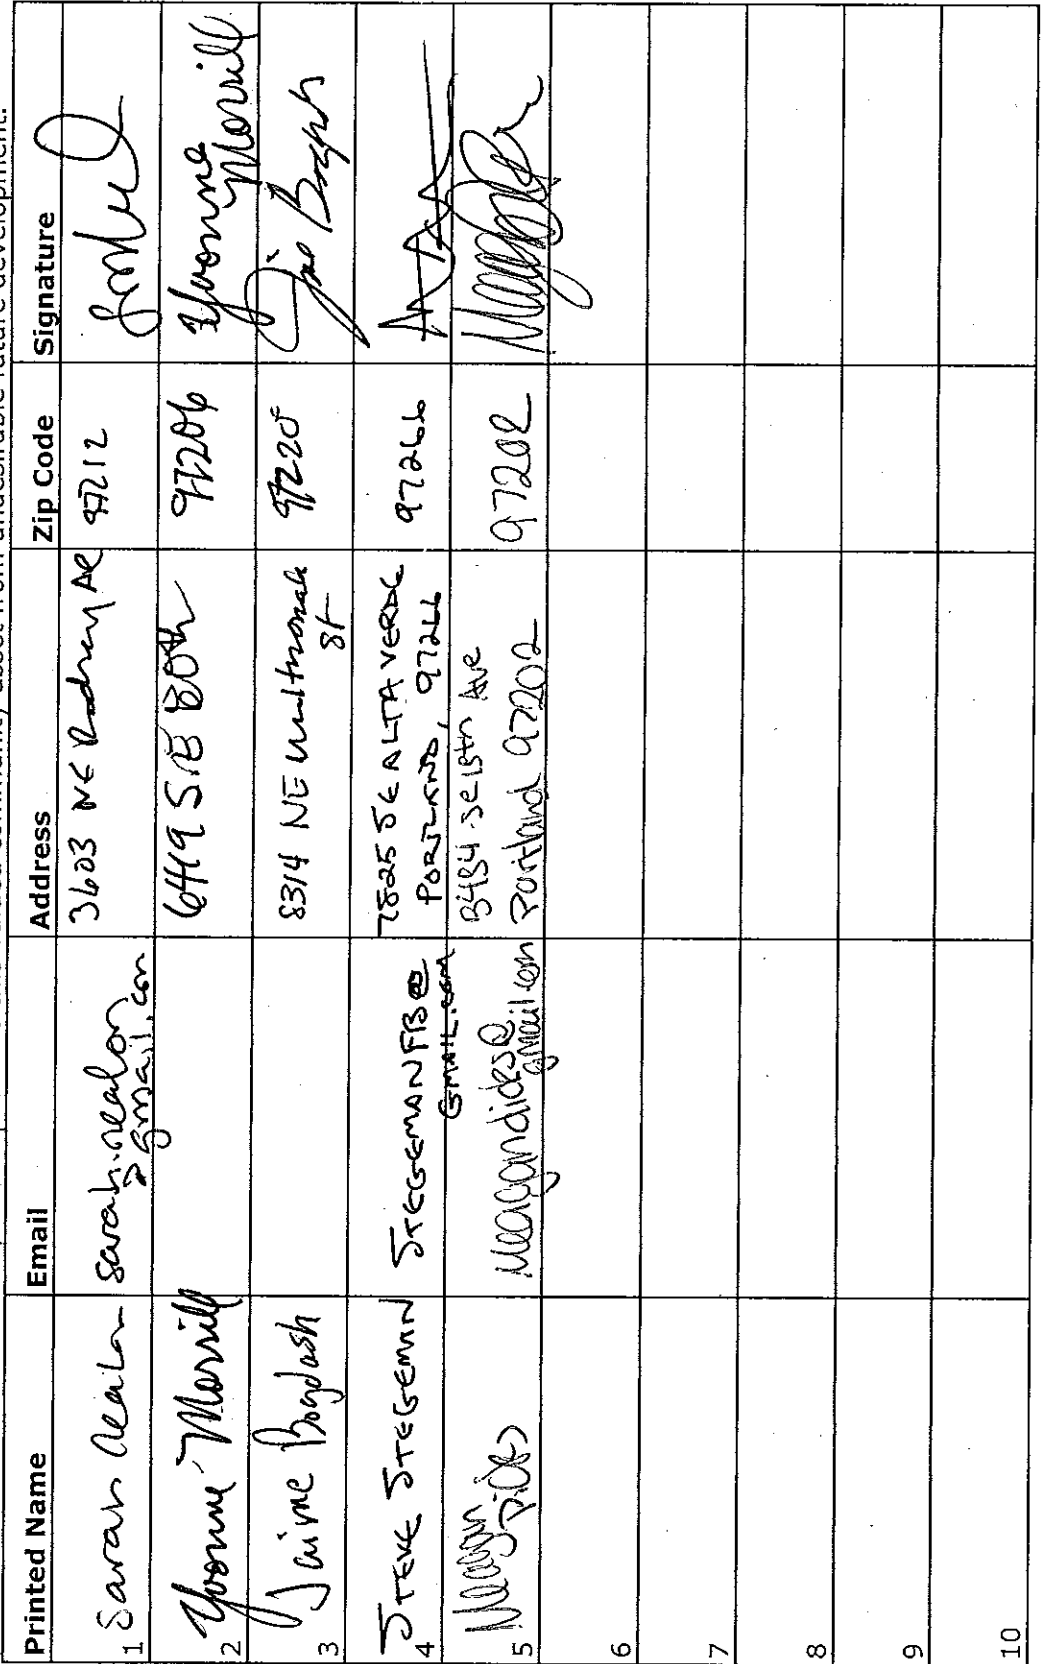 community asset from undesirable future development.
Printed Name Email Address Zip Code Signature
1 Sarah Nealon sarah.nealon@gmail.com 3603 NE Rodney Ave 97212
2 Yvonne Morrill 6449 SE 80th 97206 Yvonne Morrill
3 Jaime Bogdash 8314 NE Multnomah St 97220
4 STEVE STEGEMAN STEGEMANFB@GMAIL.COM 7825 SE ALTA VERDE PORTLAND, 97266 97266
5 Meagan Dicks meagandicks@gmail.com SE 15th Ave Portland 97202 97202
6
7
8
9
10